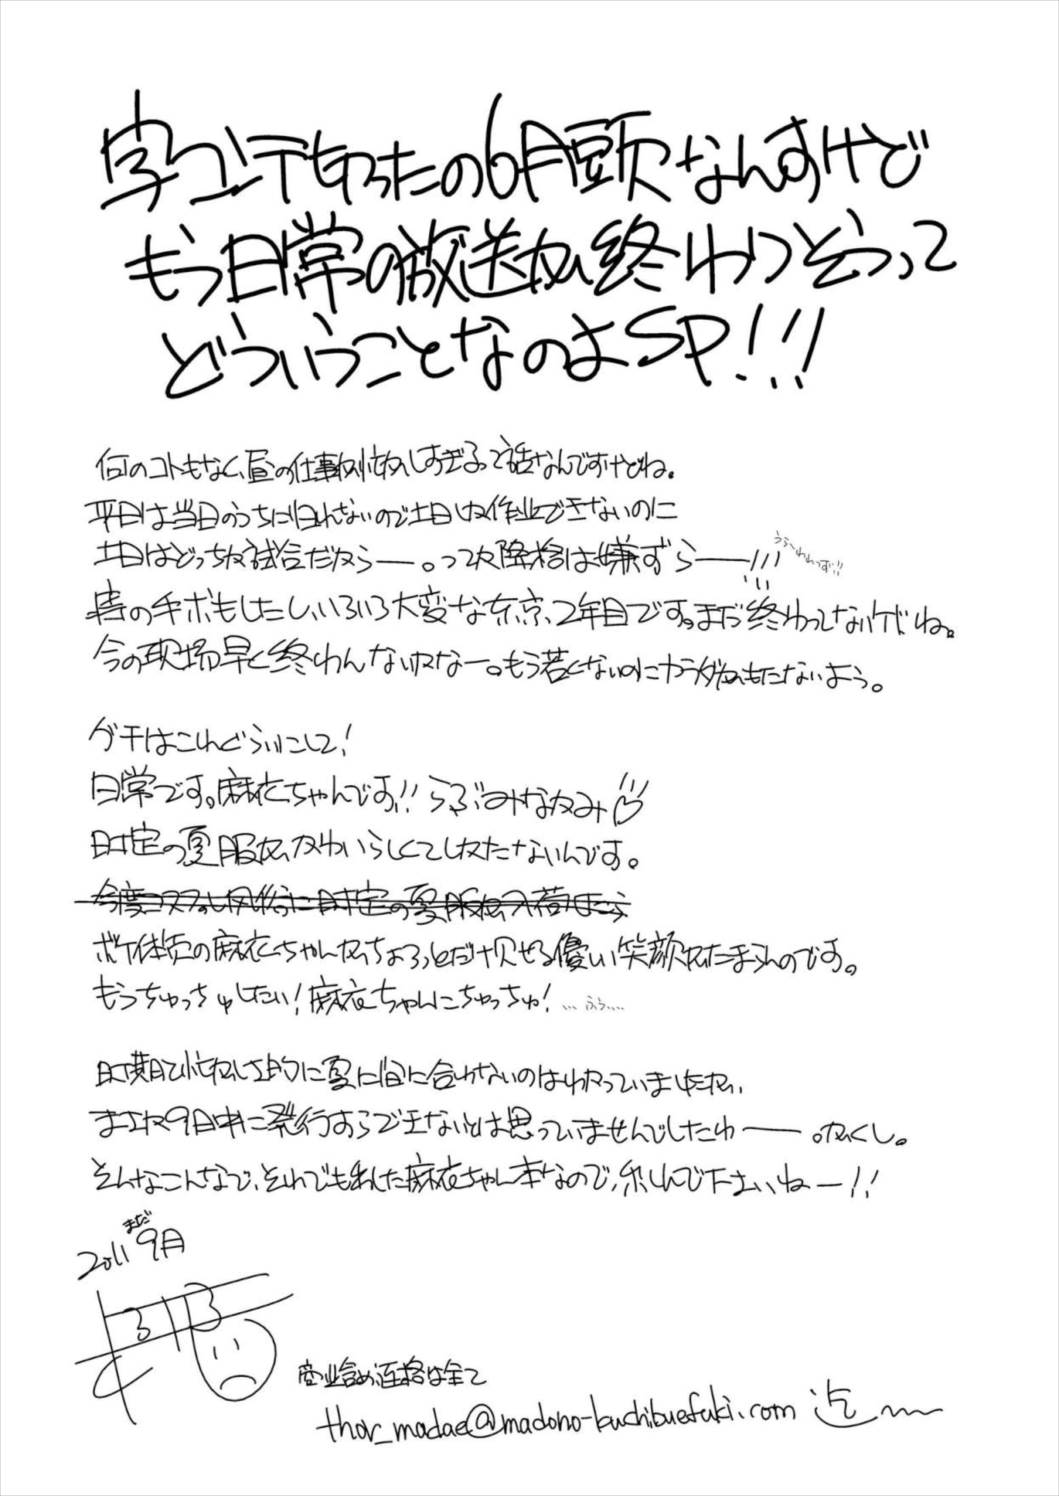 字コンテ切ったの6月頭なんすけど
もう日常の放送が終わりそうって
どういうことなのよSP!!!
何のコトもなく、昼の仕事が忙しすぎるって話なんですけどね。
平日は当日のうちに帰れないので土日しか作業できないのに
土日はどっちか試合だからー。って次降格は嫌ずらー!!!
の手ボもしたし、いろいろ大変な東京、2年目です。まだ終わってないけどね。
今の現場早く終わんないかなー。もう若くないのにカラダがもたないよう。
グチはこれぐらいにして!
日常です。麻衣ちゃんです!! らぶみなかみ
時定の夏服がかわいらしくてしかたないんです。
今度コスプレ風俗に時定の夏服が入荷したら
ボケ体質の麻衣ちゃんがちょろっとだけ見せる優しい笑顔がたまらんのです。
もうちゅっちゅしたい!麻衣ちゃんにちゅっちゅ!……ふぅ……
時期的に夏に間に合わないのはわかっていましたが、
まさか9月中に発行すらできないとは思っていませんでしたわー。がくし。
そんなこんなで、それでも出た麻衣ちゃん本なので、楽しんで下さいねー!!
まだ
2011 9月
商業含め連絡は全て
thor_madae@madono-kuchibuefuki.com 迄〜